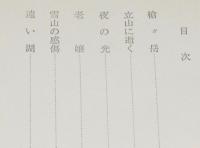 目次
槍ヶ岳
立山に逝く
夜の光
老嬢
雪山の感傷
遠い湖